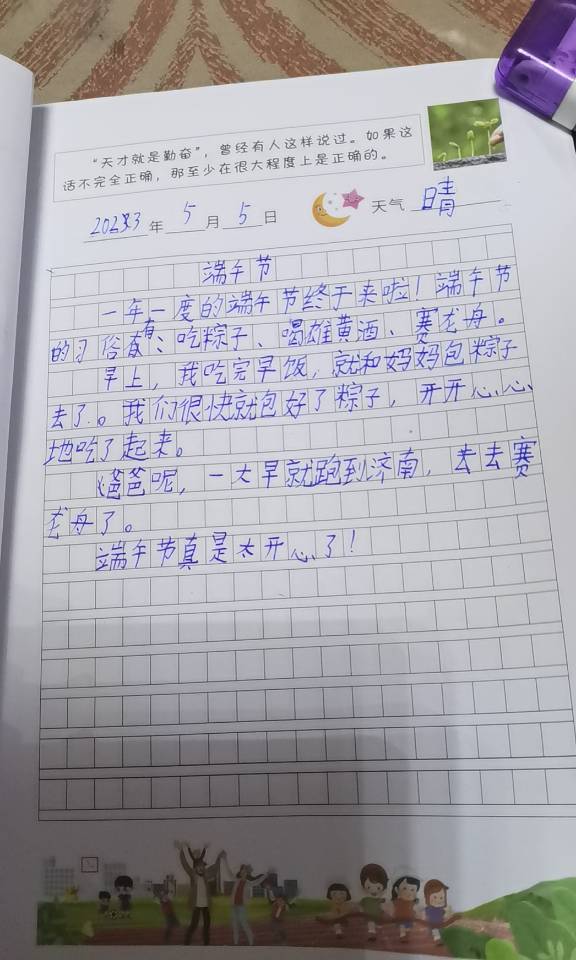 “天才就是勤奋”，曾经有人这样说过。如果这
话不完全正确，那至少在很大程度上是正确的。
2023年 5月 5日 天气 晴
端午节
一年一度的端午节终于来啦！端午节
的习俗有：吃粽子、喝雄黄酒、赛龙舟。
早上，我吃完早饭，就和妈妈包粽子
去了。我们很快就包好了粽子，开开心心
地吃了起来。
爸爸呢，一大早就跑到济南，去去赛
龙舟了。
端午节真是太开心了！